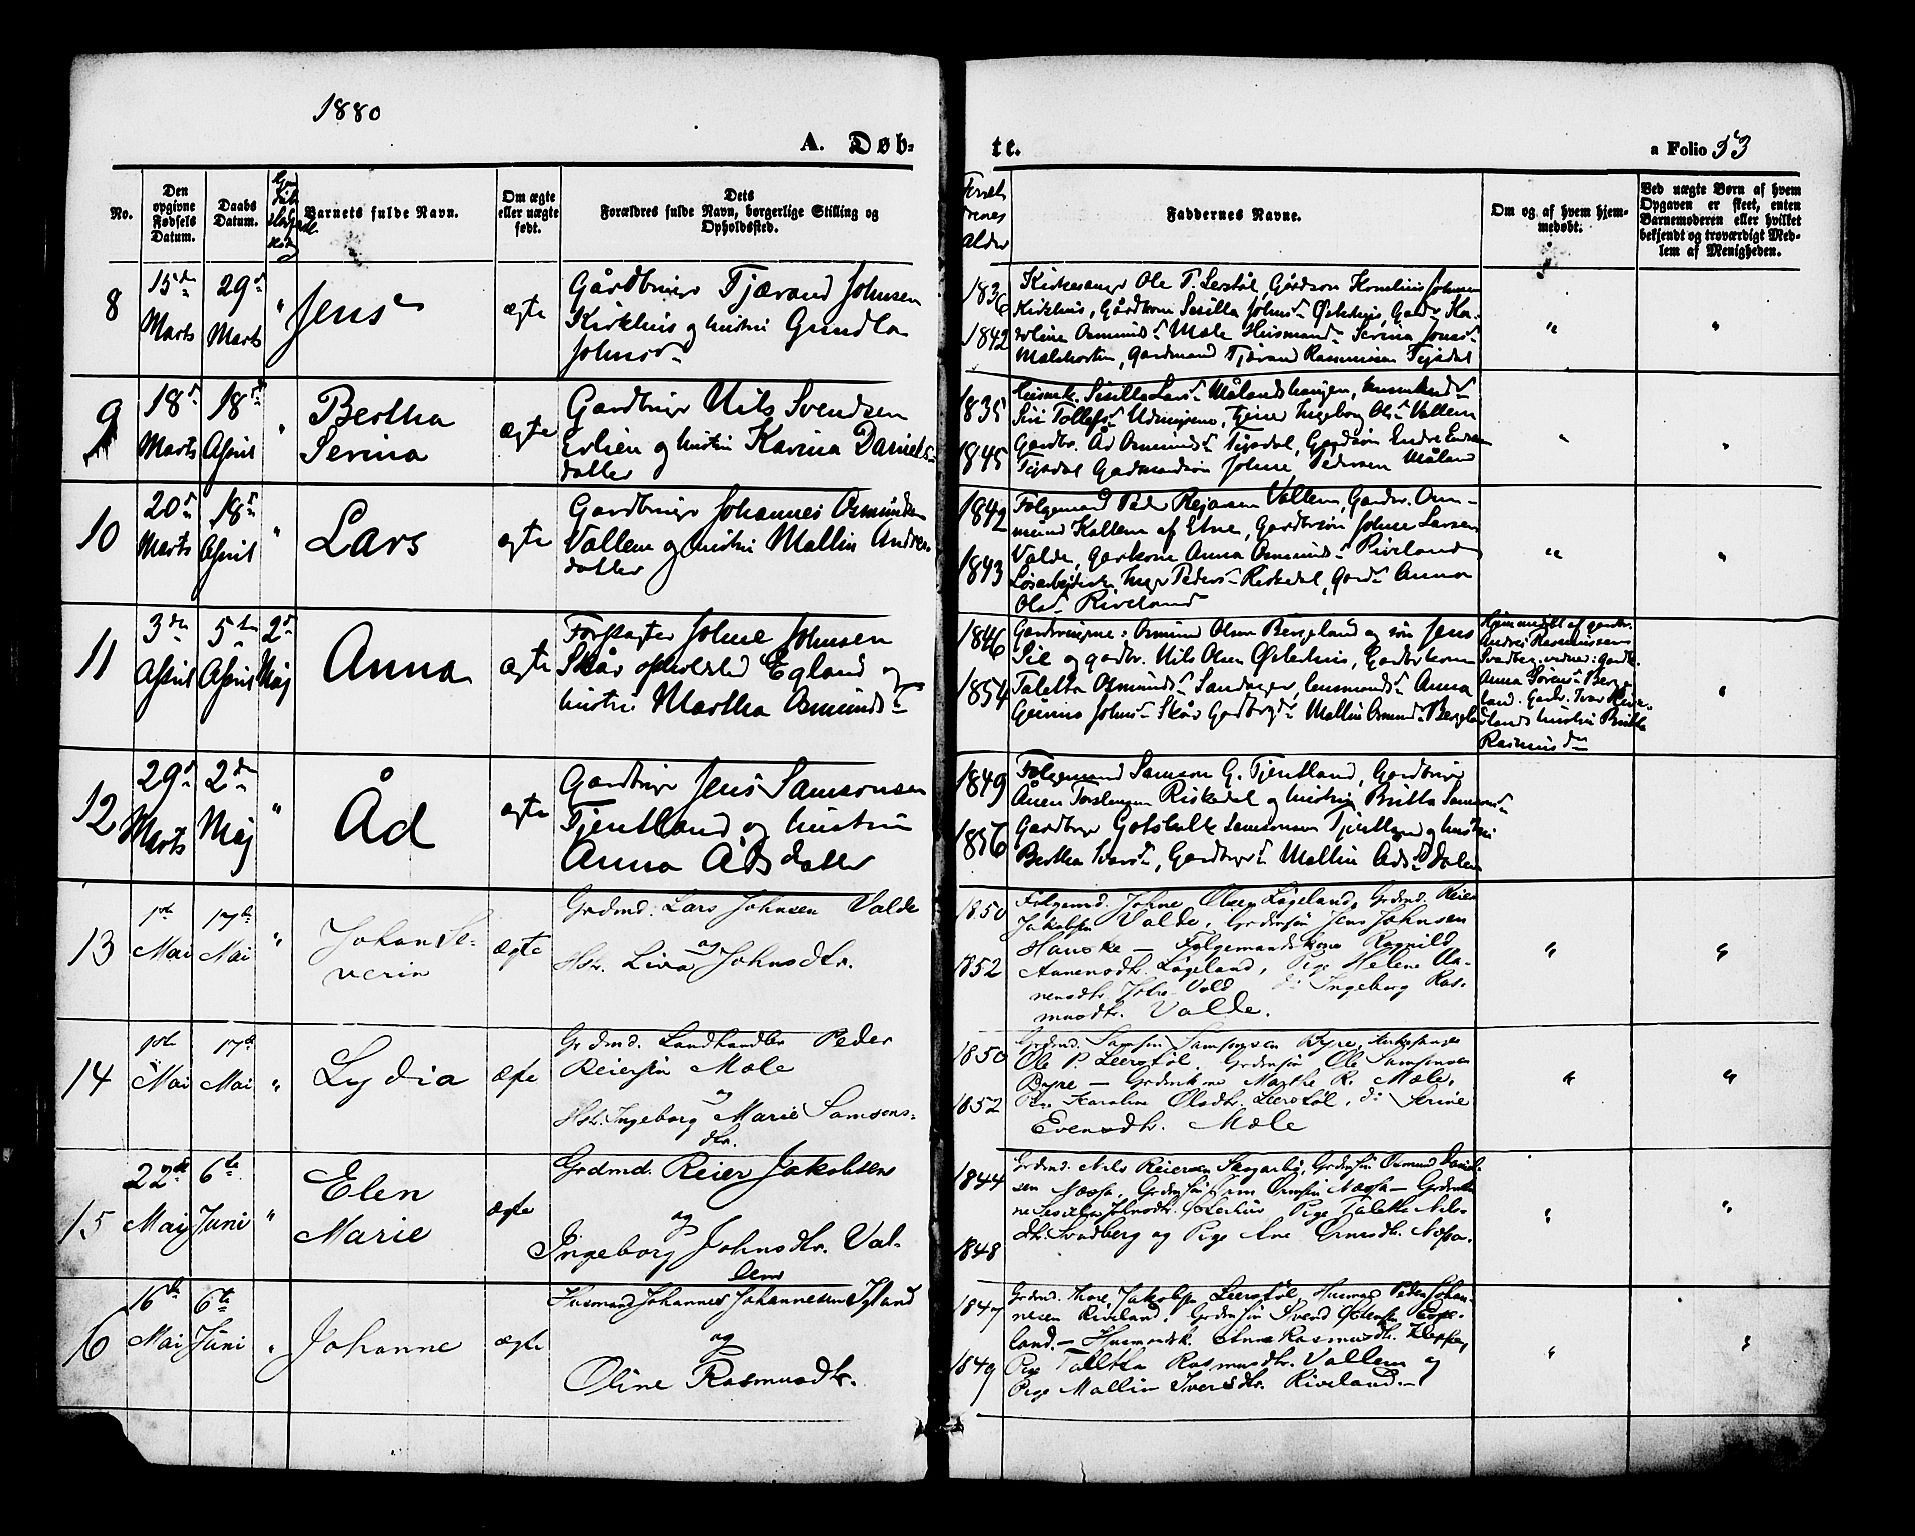 1880
A. Døb-
te.
a Folio 53
No.
Den opgivne Fødsels Datum.
Daabs Datum.
Barnets fulde Navn.
Om ægte eller uægte født.
Dets Forældres fulde Navn, borgerlige Stilling og Opholdssted.
Faddernes Navne.
Om og af hvem hjemmedøbt.
Ved uægte Børn af hvem Opgaven er skeet, enten Barnemoderen eller hvilket bekjendt og troværdigt Medlem af Menigheden.
8
15de Marts
29de Marts
"
Jens
ægte
Gårdbruger Tjærand Johnsen
Kirkhus og hustru Gundla
Johnsd.
1836
1842
Kirkesanger Ole P. Lerstøl Gårdsøn Kornelius Johnsen
Kirkhus, Gårdkone Sesilla Johnsd. Østerhus Gardr. Ka-
roline Osmundsd. Møle Husmand Serina Jonsd.
Gardmand Tjærand Rasmusen Tejsdal
"
"
9
18de Marts
18de April
"
Bertha
Serina
ægte
Gardbruger Nils Svendsen
Evlien og hustru Karina Daniels-
datter
1835
1845
Husmk. Sesilla Larsd. Målandshaugen,
Siri Tollefsd. Tjener Ingeborg Olsd. Vallem
Gardbr. Åd Osmunds. Tejsdal, Gardsøn Endre Endresen
Tejsdal Gardmandsøn Johne Pedersen Måland
"
"
10
20de Marts
18de April
"
Lars
ægte
Gardbruger Johannes Osmundsen
Vallem og hustru Mallin Andreas-
datter
1842
1843
Følgemand Peder Vallem, Gardbr. Os-
mund Kallem af Etne, Gardbrsøn Johne Larsen
Valde, Garkone Anna Osmundsd. Riveland
Inger Pedersd. Riskedal, Anna
Olsd. Riveland
"
"
11
3de April
5te April
2de Maj
Anna
ægte
Forpagter Johne Johnsen
Skår opholdsted Egland og
hustru Martha Osmundsd.
1846
1854
Gardbrugerne: Osmund Olsen Bergeland og søn Jens
og gardbr. Nils Olsen Østerhus, Gardbrkone
Taletta Osmundsd. Sandager, husmandsd. Anna
Gurine Johnsd. Skår Gardbrd. Mallin Osmundsd. Bergeland
Hjemmedøbt af gardbr.
Andreas Rasmussen
Svadberg, vidner: gardk.
Anna Sørensd. Berge-
land. Gardr. Ivar Rive-
lands hustru Britta
Rasmusdr.
"
12
29de Marts
2den Maj
"
Åd
ægte
Gardbruger Jens Samsonsen
Tjentland og hustru
Anna Ådsdatter
1849
1856
Følgemand Samson G. Tjentland, Gardbruger
Ånen Torstensen Riskedal og hustru Britta Samsonsd.
Gardbruger Gotskalk Samsonsen Tjentland og hustru
Bertha Ivarsd., Gardbrugerd. Mallin Adsd. Dalen
13
1ste Mai
17de Mai
"
Johan Se-
verin
ægte
Grdmd. Lars Johnsen Valde
og
Hstr. Liva Johnsdtr.
1850
1852
Følgemd. Johne Olsen Løgeland, Grdmd. Reier
Jakobsen Valde, Grdmsøn Jens Johnsen
Hauske – Følgemandskone Ragnild
Aanensdtr. Løgeland, Pige Helene Aa-
nensdtr. Valde do Ingeborg Ras-
musdtr. Valde.
"
"
14
1ste Mai
17de Mai
"
Lydia
ægte
Grdmd. Landhandler Peder
Reiersøn Møle
og
Hstr. Ingeborg Marie Samsons-
dtr.
1850
1852
Grdmd. Samson Samsonsen Byre, Kirkesanger
Ole P. Leerstøl, Grdmsøn Ole Samsonsen
Byre – Grdmkone Marthe R. Møle,
Pige Karoline Olsdtr. Leerstøl, do Serine
Evensdtr. Møle
"
"
15
22de Mai
6te Juni
"
Elen
Marie
ægte
Grdmd. Reier Jakobsen
og
Ingeborg Johnsdtr. Val-
lem
1844
1848
Grdmd. Nils Reiersen Skogarbø, Grdmsøn Osmund Daniel-
sen Næssa, Grdmsøn Ormsøn Næssa – Grdmko-
ne Sesilla Johnsdtr. Østerhus Pige Taletta Nils-
dtr. Svadberg og Pige Ane Ormsdtr. Næssa.
"
"
16
16de Mai
6te Juni
"
Johanne
ægte
Husmand Johannes Johannessen Igland
og
Oline Rasmusdtr.
1847
1849
Grdmd. Thore Jakobsen Leerstøl, Husmand Peder Johan-
nesen Riveland, Grdmsøn Svend
land. – Husmandsk. Anna Rasmusdtr. Kleppe,
Pige Taletta Rasmusdtr. Vallem og
Pige Mallin Iversdtr. Riveland. –
"
"